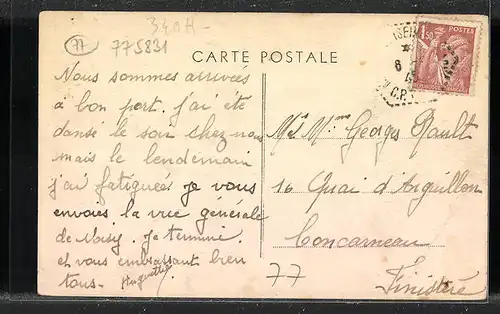 340H-
77
775831
CARTE POSTALE
POSTES
1f50
6
C.P.
Nous sommes arrivées
à bon port. j'ai été
danse le soir chez nous
mais le lendemain
j'ai fatiguée je vous
envoies la vue générale
de Noisy. je termine
et vous embrassant bien
tous. Huguette
Mr Mme Georges Rault
16 Quai d'Aiguillon
Concarneau
77
Finistère